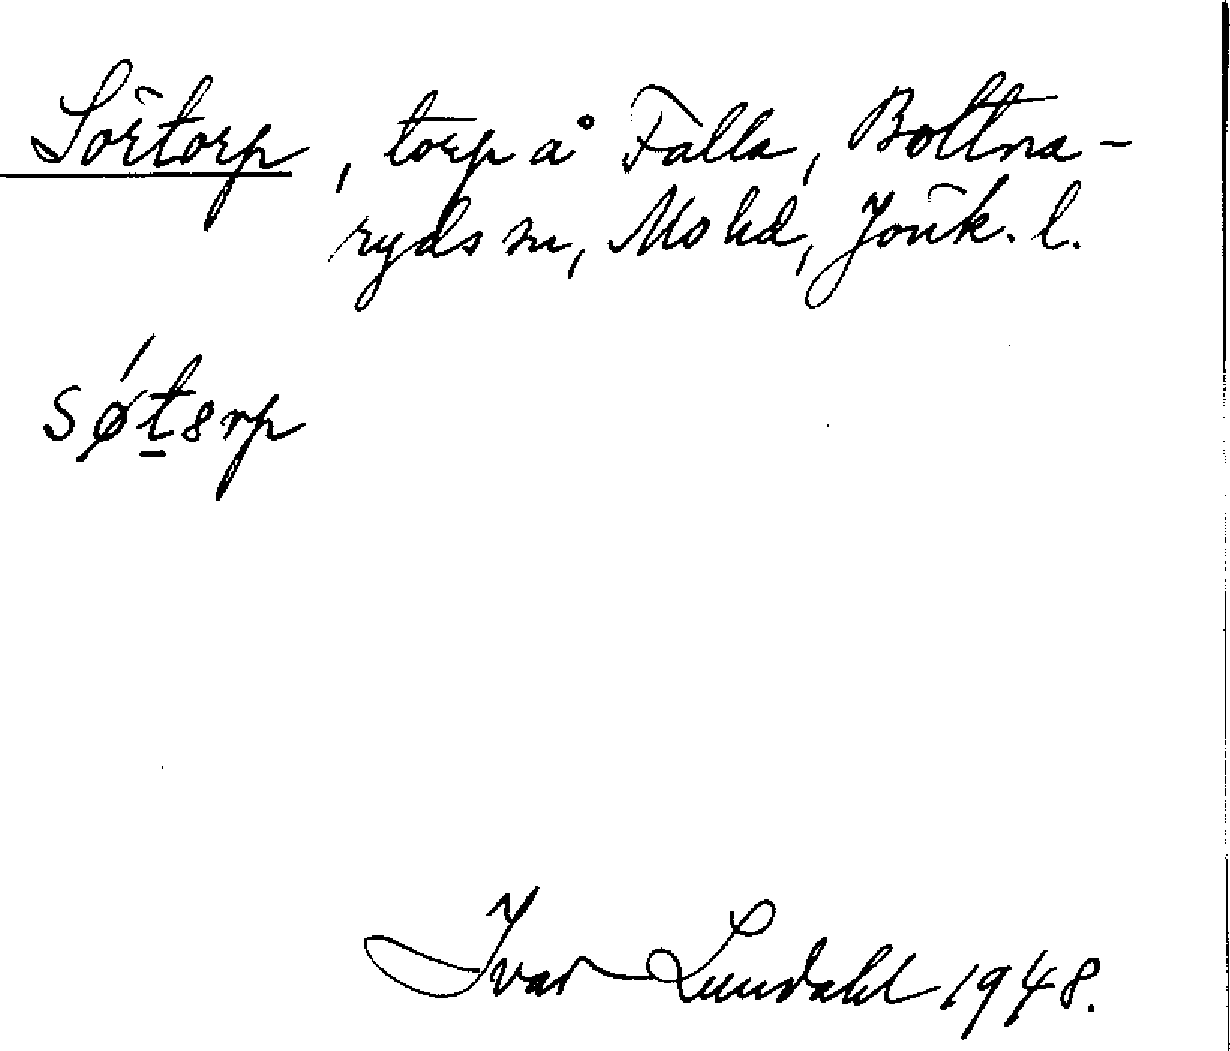 Sörtorp, torp å Falla, Bottna-
ryds sn, Mo hd, Jönk. l.
sǿt̲8rp
Ivar Lundahl 1948.